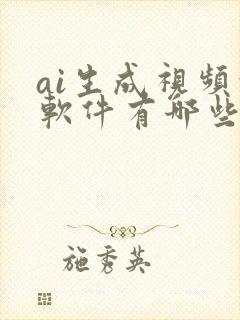 ai生成視頻
軟件有哪些
施秀英